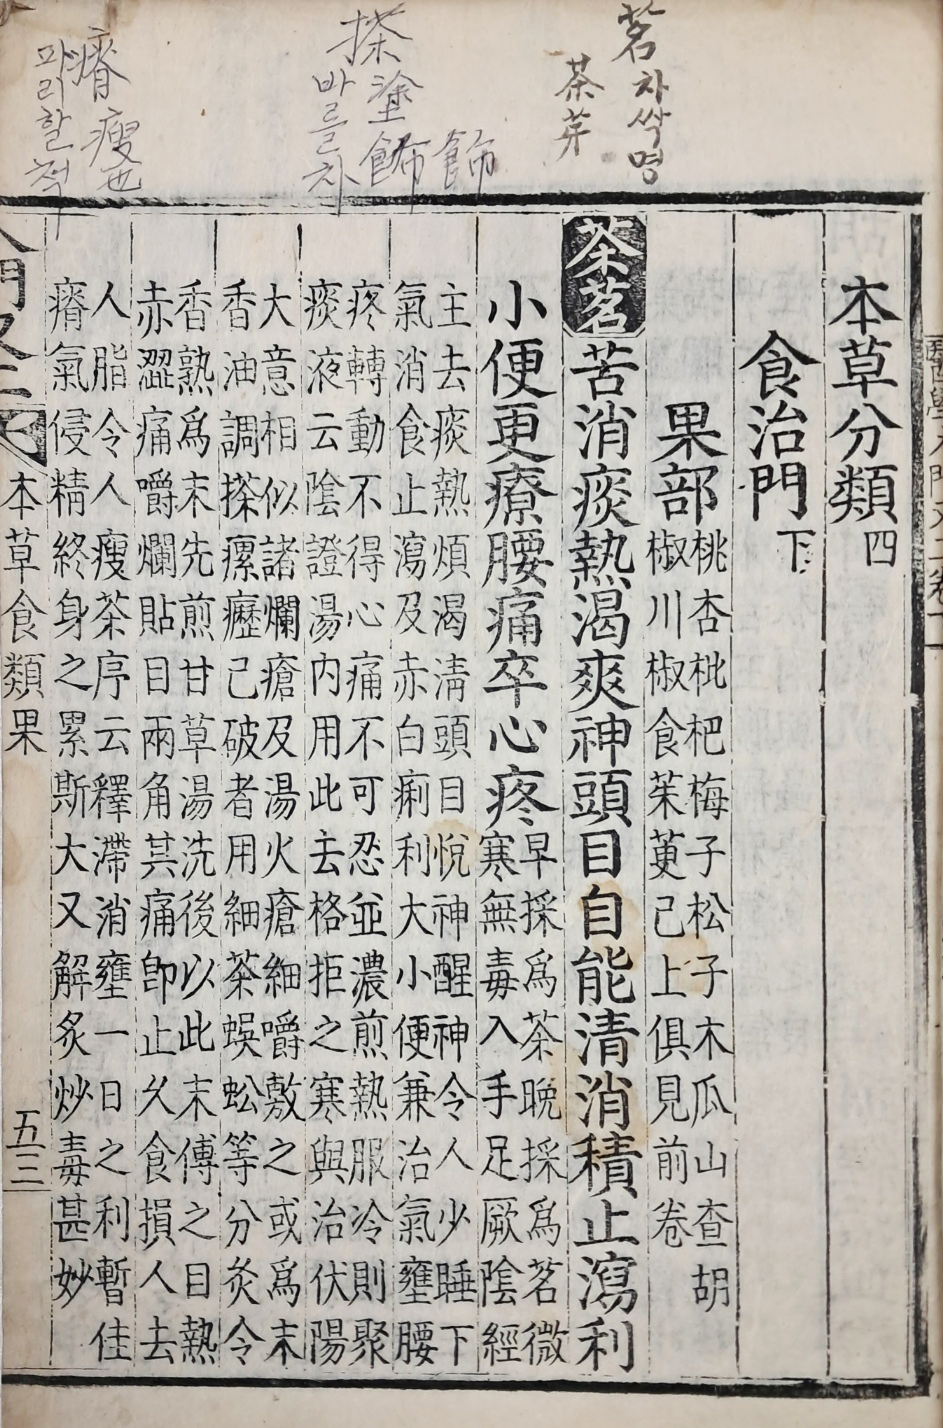 茗 차싹명
茶芽
搽 바를차
塗
飾
飾
瘠 파리할척
瘦也
本草分類四
食治門下
果部
桃杏枇杷梅子松子木瓜山查胡
椒川椒食茱萸已上俱見前卷
茶茗 苦消痰熱渴爽神頭目自能清消積止瀉利
小便更療腰痛卒心疼
早採爲茶晚採爲茗微
寒無毒入手足厥陰經
主去痰熱煩渴淸頭目悅神醒神令人少睡下
氣消食止瀉及赤白痢利大小便兼治氣壅腰
疼轉動不得心痛不可忍並濃煎熱服冷則聚
痰液云陰證湯內用此去格拒之寒與治伏陽
大意相似諸爛瘡及湯火瘡細嚼敷之或爲末
香油調搽瘰癧已破者用細茶蜈蚣等分炙令
香熟爲末先煎甘草湯洗後以此末傅之目熱
赤澀痛嚼爛貼目兩角其痛卽止久食損人去
人脂令人瘦茶序云釋滯消壅一日之利暫佳
瘠氣侵精終身之累斯大又解炙炒毒甚妙
本草食類果
五三